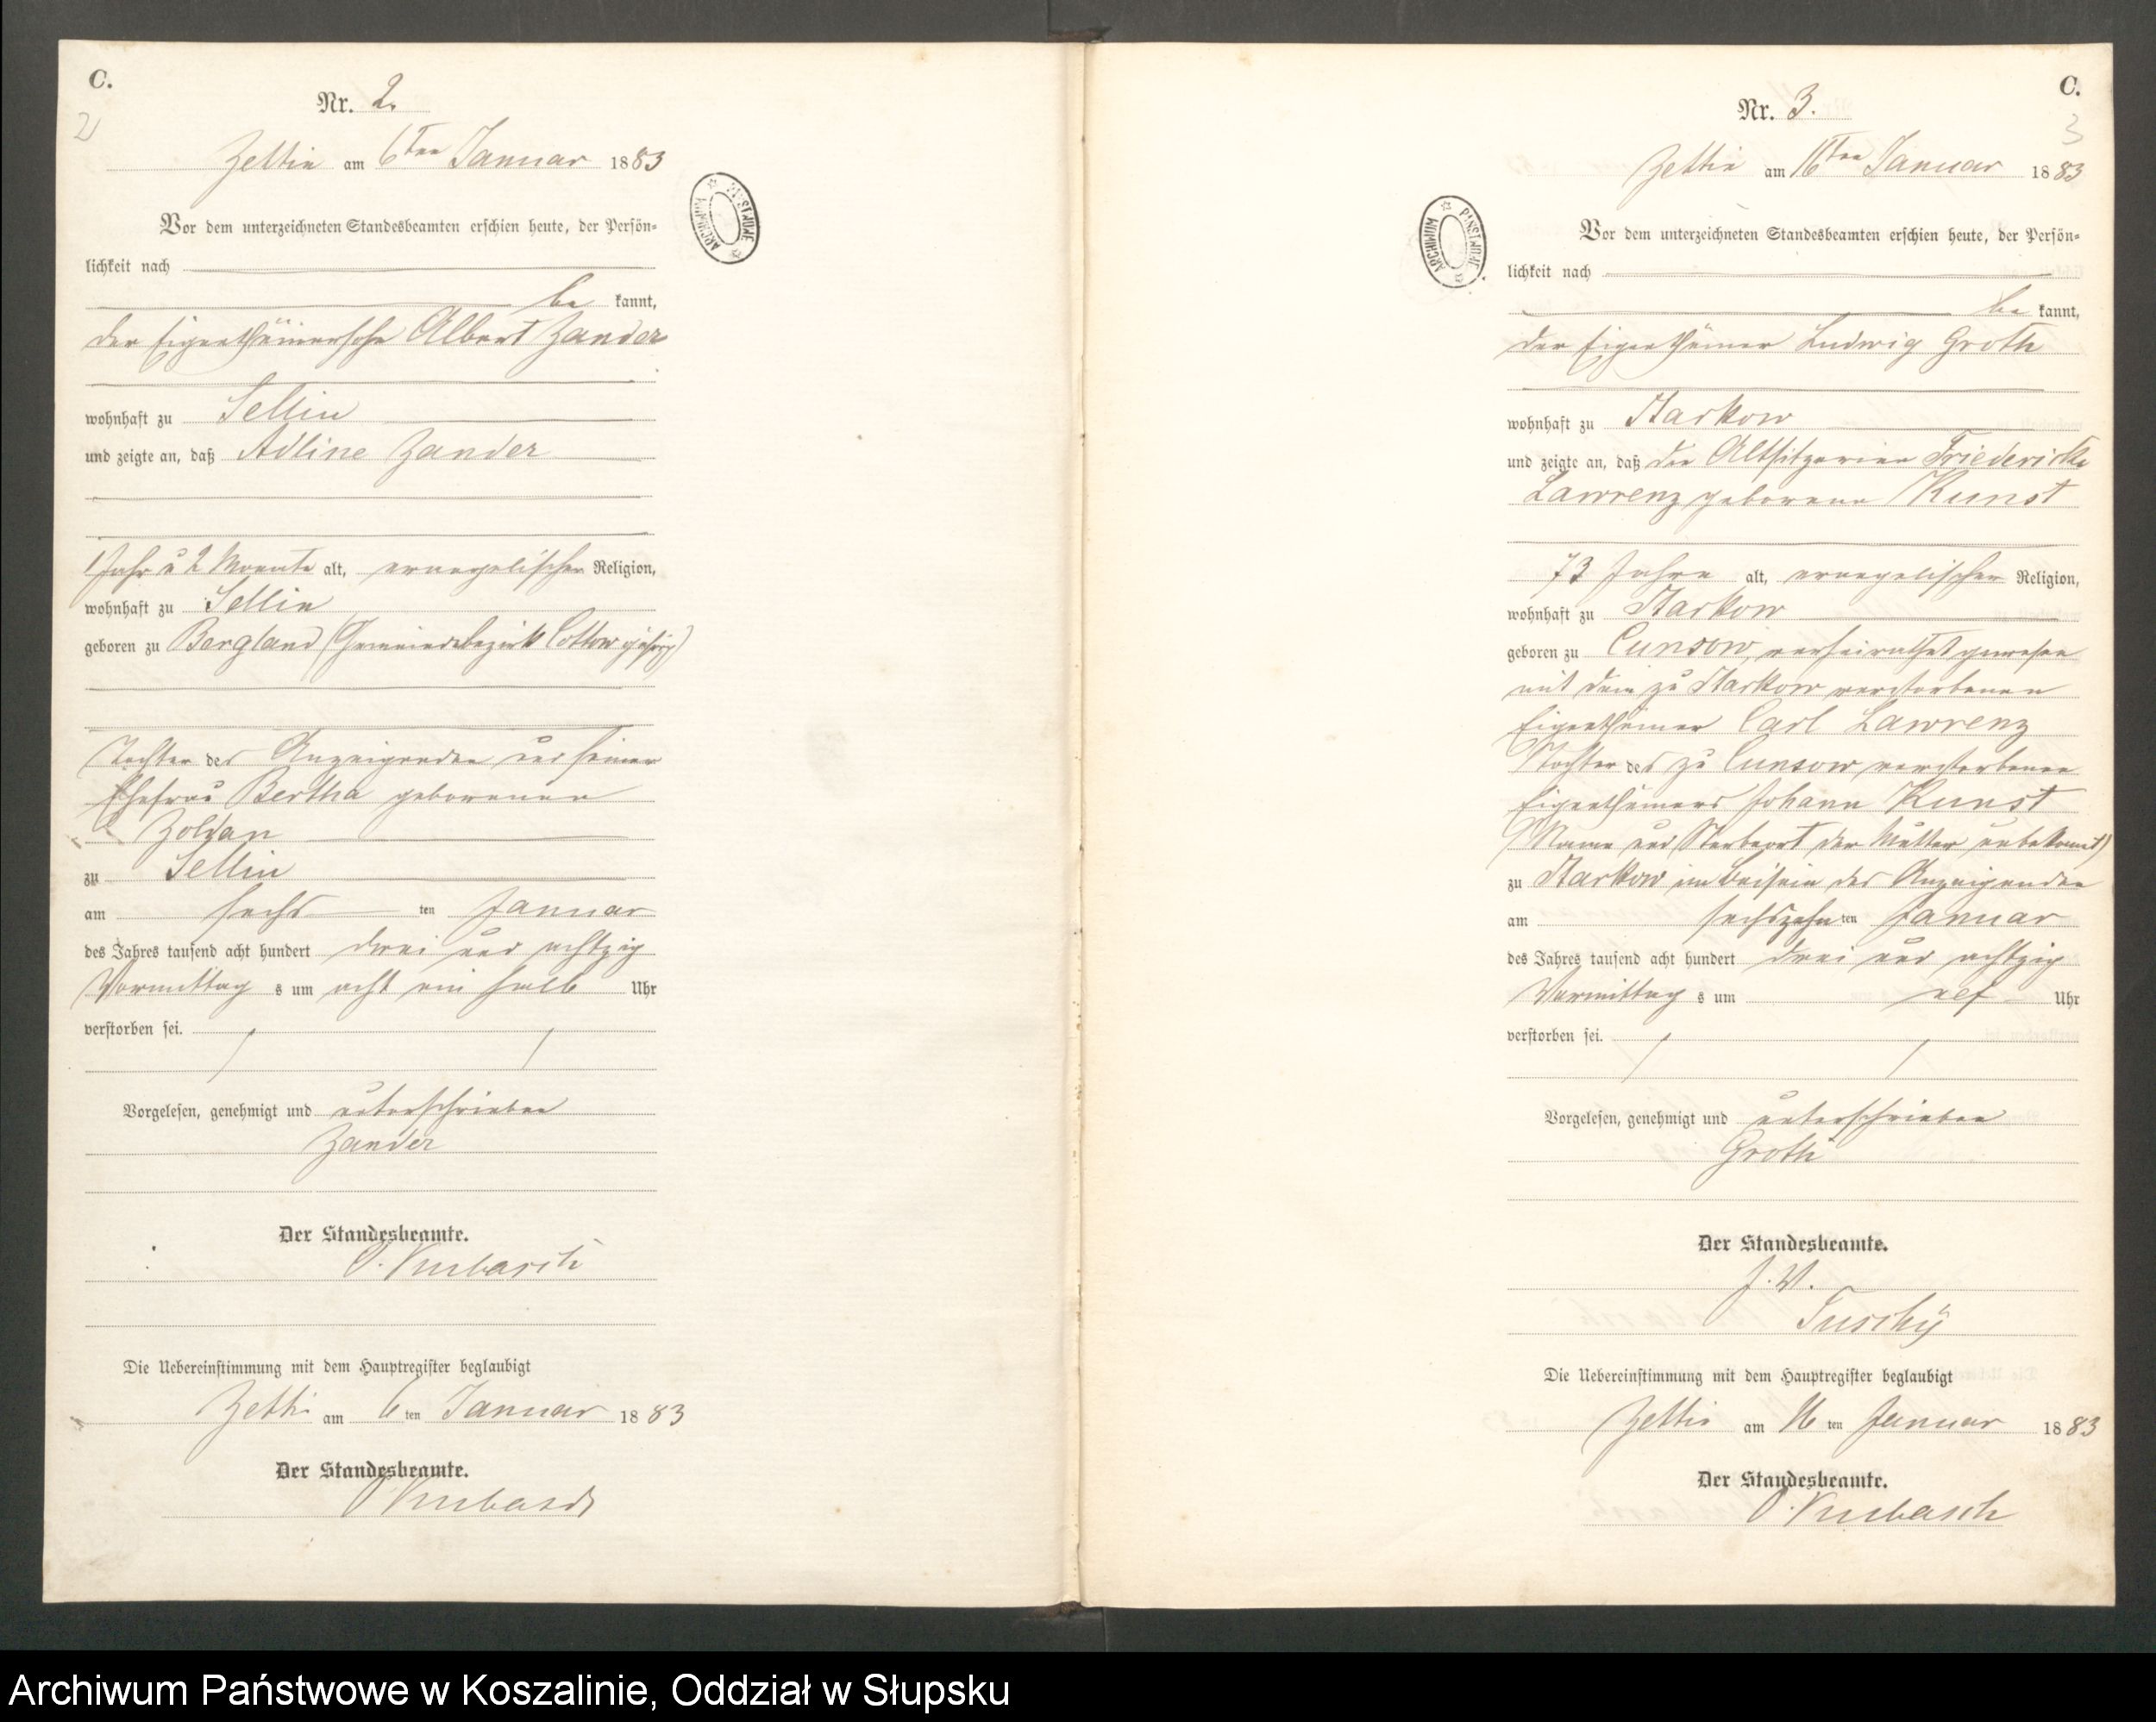 C.
2
Nr. 2.
Zettin am 6ten Januar 1883
Vor dem unterzeichneten Standesbeamten erschien heute, der Persön-
lichkeit nach
be kannt,
der Eigenthümersohn Albert Zander
wohnhaft zu Sellin
und zeigte an, daß Adline Zander
1 Jahr u 2 Monate alt, evangelischer Religion,
wohnhaft zu Sellin
geboren zu Bergland (Gemeindebezirk Cottow gehörig)
Tochter des Anzeigenden und seiner
Ehefrau Bertha geborenen
Zoldan
zu Sellin
am sechs ten Januar
des Jahres tausend acht hundert drei und achtzig
Vormittag s um acht ein halb Uhr
verstorben sei.
Vorgelesen, genehmigt und unterschrieben
Zander
Der Standesbeamte.
O. Kubasch
Die Uebereinstimmung mit dem Hauptregister beglaubigt
Zettin am 6 ten Januar 1883
Der Standesbeamte.
O Kubasch
ARCHIWUM PAŃSTWOWE
C.
3
Nr. 3.
Zettin am 16ten Januar 1883
Vor dem unterzeichneten Standesbeamten erschien heute, der Persön-
lichkeit nach
be kannt,
der Eigenthümer Ludwig Groth
wohnhaft zu Starkow
und zeigte an, daß die Altsitzerin Friedericke
Lawrenz geborene Kunst
73 Jahre alt, evangelischer Religion,
wohnhaft zu Starkow
geboren zu Cunsow, verheirathet gewesen
mit dem zu Starkow verstorbenen
Eigenthümer Carl Lawrenz
Tochter des zu Cunsow verstorbenen
Eigenthümers Johann Kunst
(Name und Sterbeort der Mutter unbekannt)
zu Starkow im Beisein des Anzeigenden
am sechszehn ten Januar
des Jahres tausend acht hundert drei und achtzig
Vormittag s um elf Uhr
verstorben sei.
Vorgelesen, genehmigt und unterschrieben
Groth
Der Standesbeamte.
J. V.
Tuschy
Die Uebereinstimmung mit dem Hauptregister beglaubigt
Zettin am 16 ten Januar 1883
Der Standesbeamte.
O. Kubasch
ARCHIWUM PAŃSTWOWE
Archiwum Państwowe w Koszalinie, Oddział w Słupsku